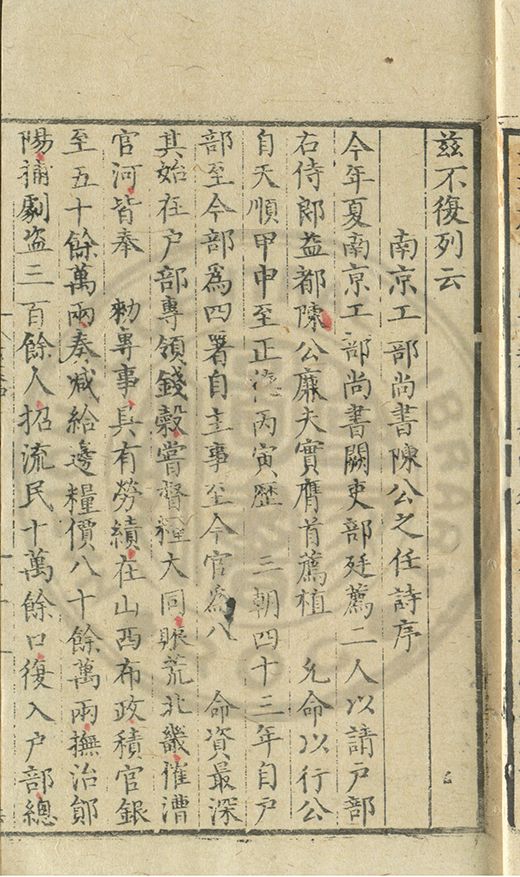 茲不復列云
南京工部尚書陳公之任詩序
今年夏南京工部尚書闕吏部廷薦二人以請戶部
右侍郎益都陳公廉夫實膺首薦植 允命以行公
自天順甲申至正德丙寅歷 三朝四十三年自戶
部至今部為四署自主事至今官為八 命資最深
其始在戶部專領錢穀嘗督糧大同賑荒北畿催漕
官河皆奉 勑專事具有勞績在山西布政積官銀
至五十餘萬兩奏减給邊糧價八十餘萬兩撫治鄖
陽捕劇盜三百餘人招流民十萬餘口復入戶部總